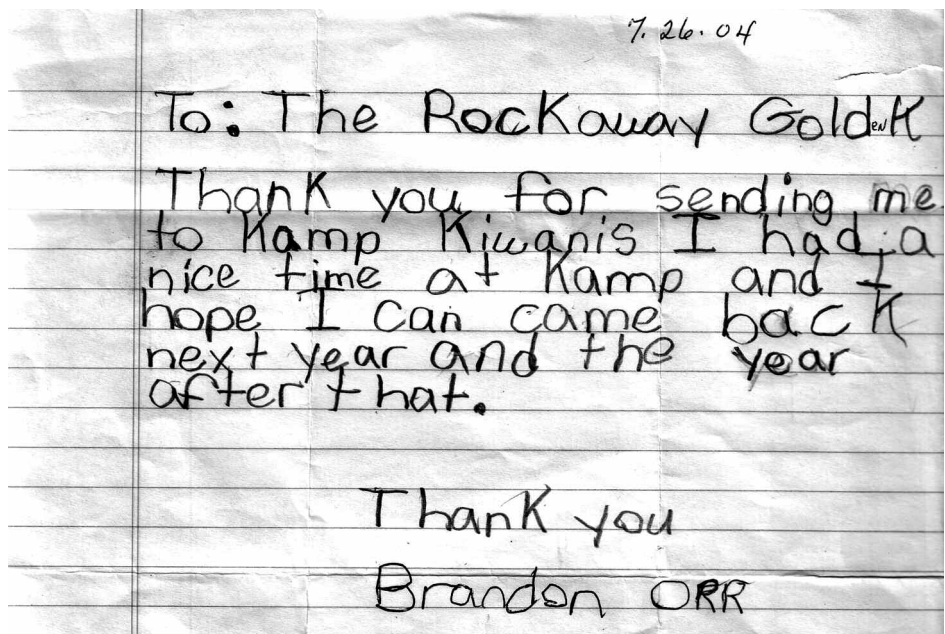 7.26.04
To: The Rockaway GoldenK
Thank you for sending me
to Kamp Kiwanis I had a
nice time at Kamp and I
hope I can came back
next year and the year
after that.
Thank you
Brandon ORR